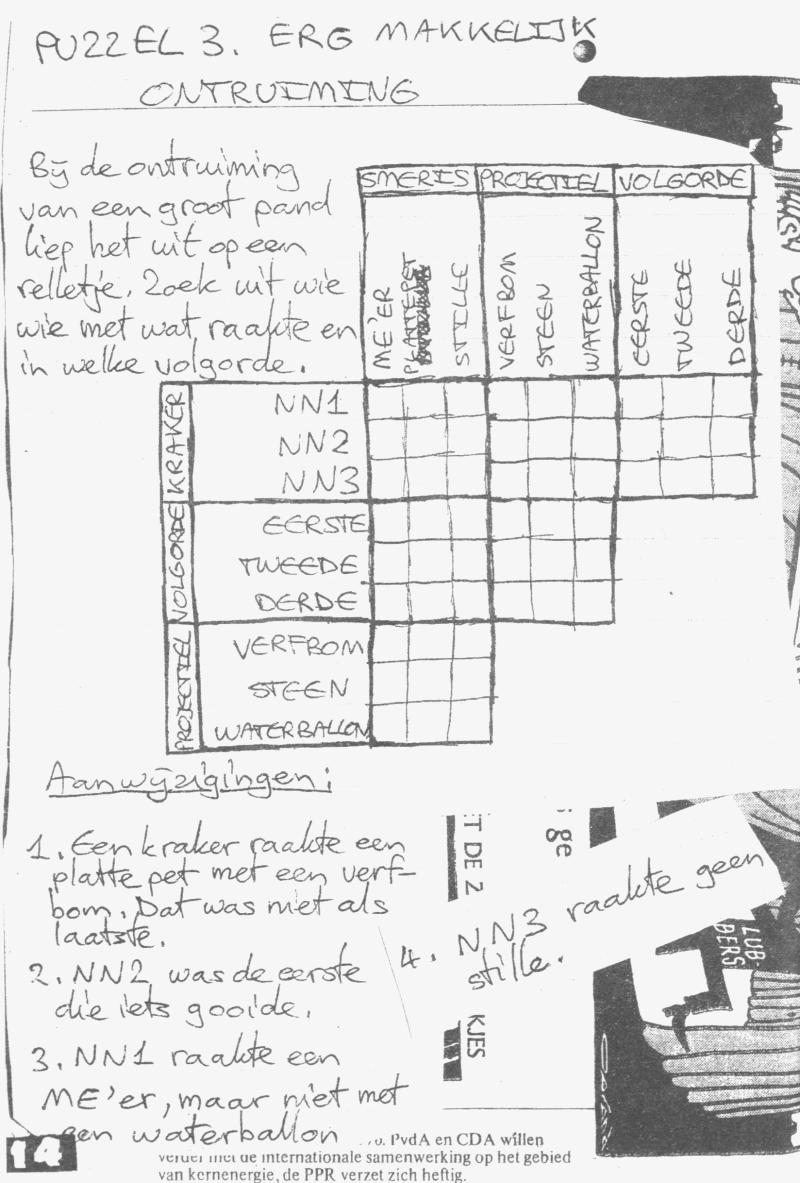 PUZZEL 3. ERG MAKKELIJK!
ONTRUIMING
Bij de ontruiming
van een groot pand
liep het uit op een
relletje. Zoek uit wie
wie met wat raakte en
in welke volgorde.
SMERIS PROJECTIEL VOLGORDE
ME'ER
PLATTE PET
STILLE
VERFBOM
STEEN
WATERBALLON
EERSTE
TWEEDE
DERDE
KRAKER
NN1
NN2
NN3
VOLGORDE
EERSTE
TWEEDE
DERDE
PROJECTIEL
VERFBOM
STEEN
WATERBALLON
Aanwijzigingen:
1. Een kraker raakte een
platte pet met een verf-
bom. Dat was niet als
laatste.
2. NN2 was de eerste
die iets gooide.
3. NN1 raakte een
ME'er, maar niet met
een waterballon
4. NN3 raakte geen
stille.
ge
T DE 2
KJES
LUB-
BERS
14
PvdA en CDA willen
verder met de internationale samenwerking op het gebied
van kernenergie, de PPR verzet zich heftig.